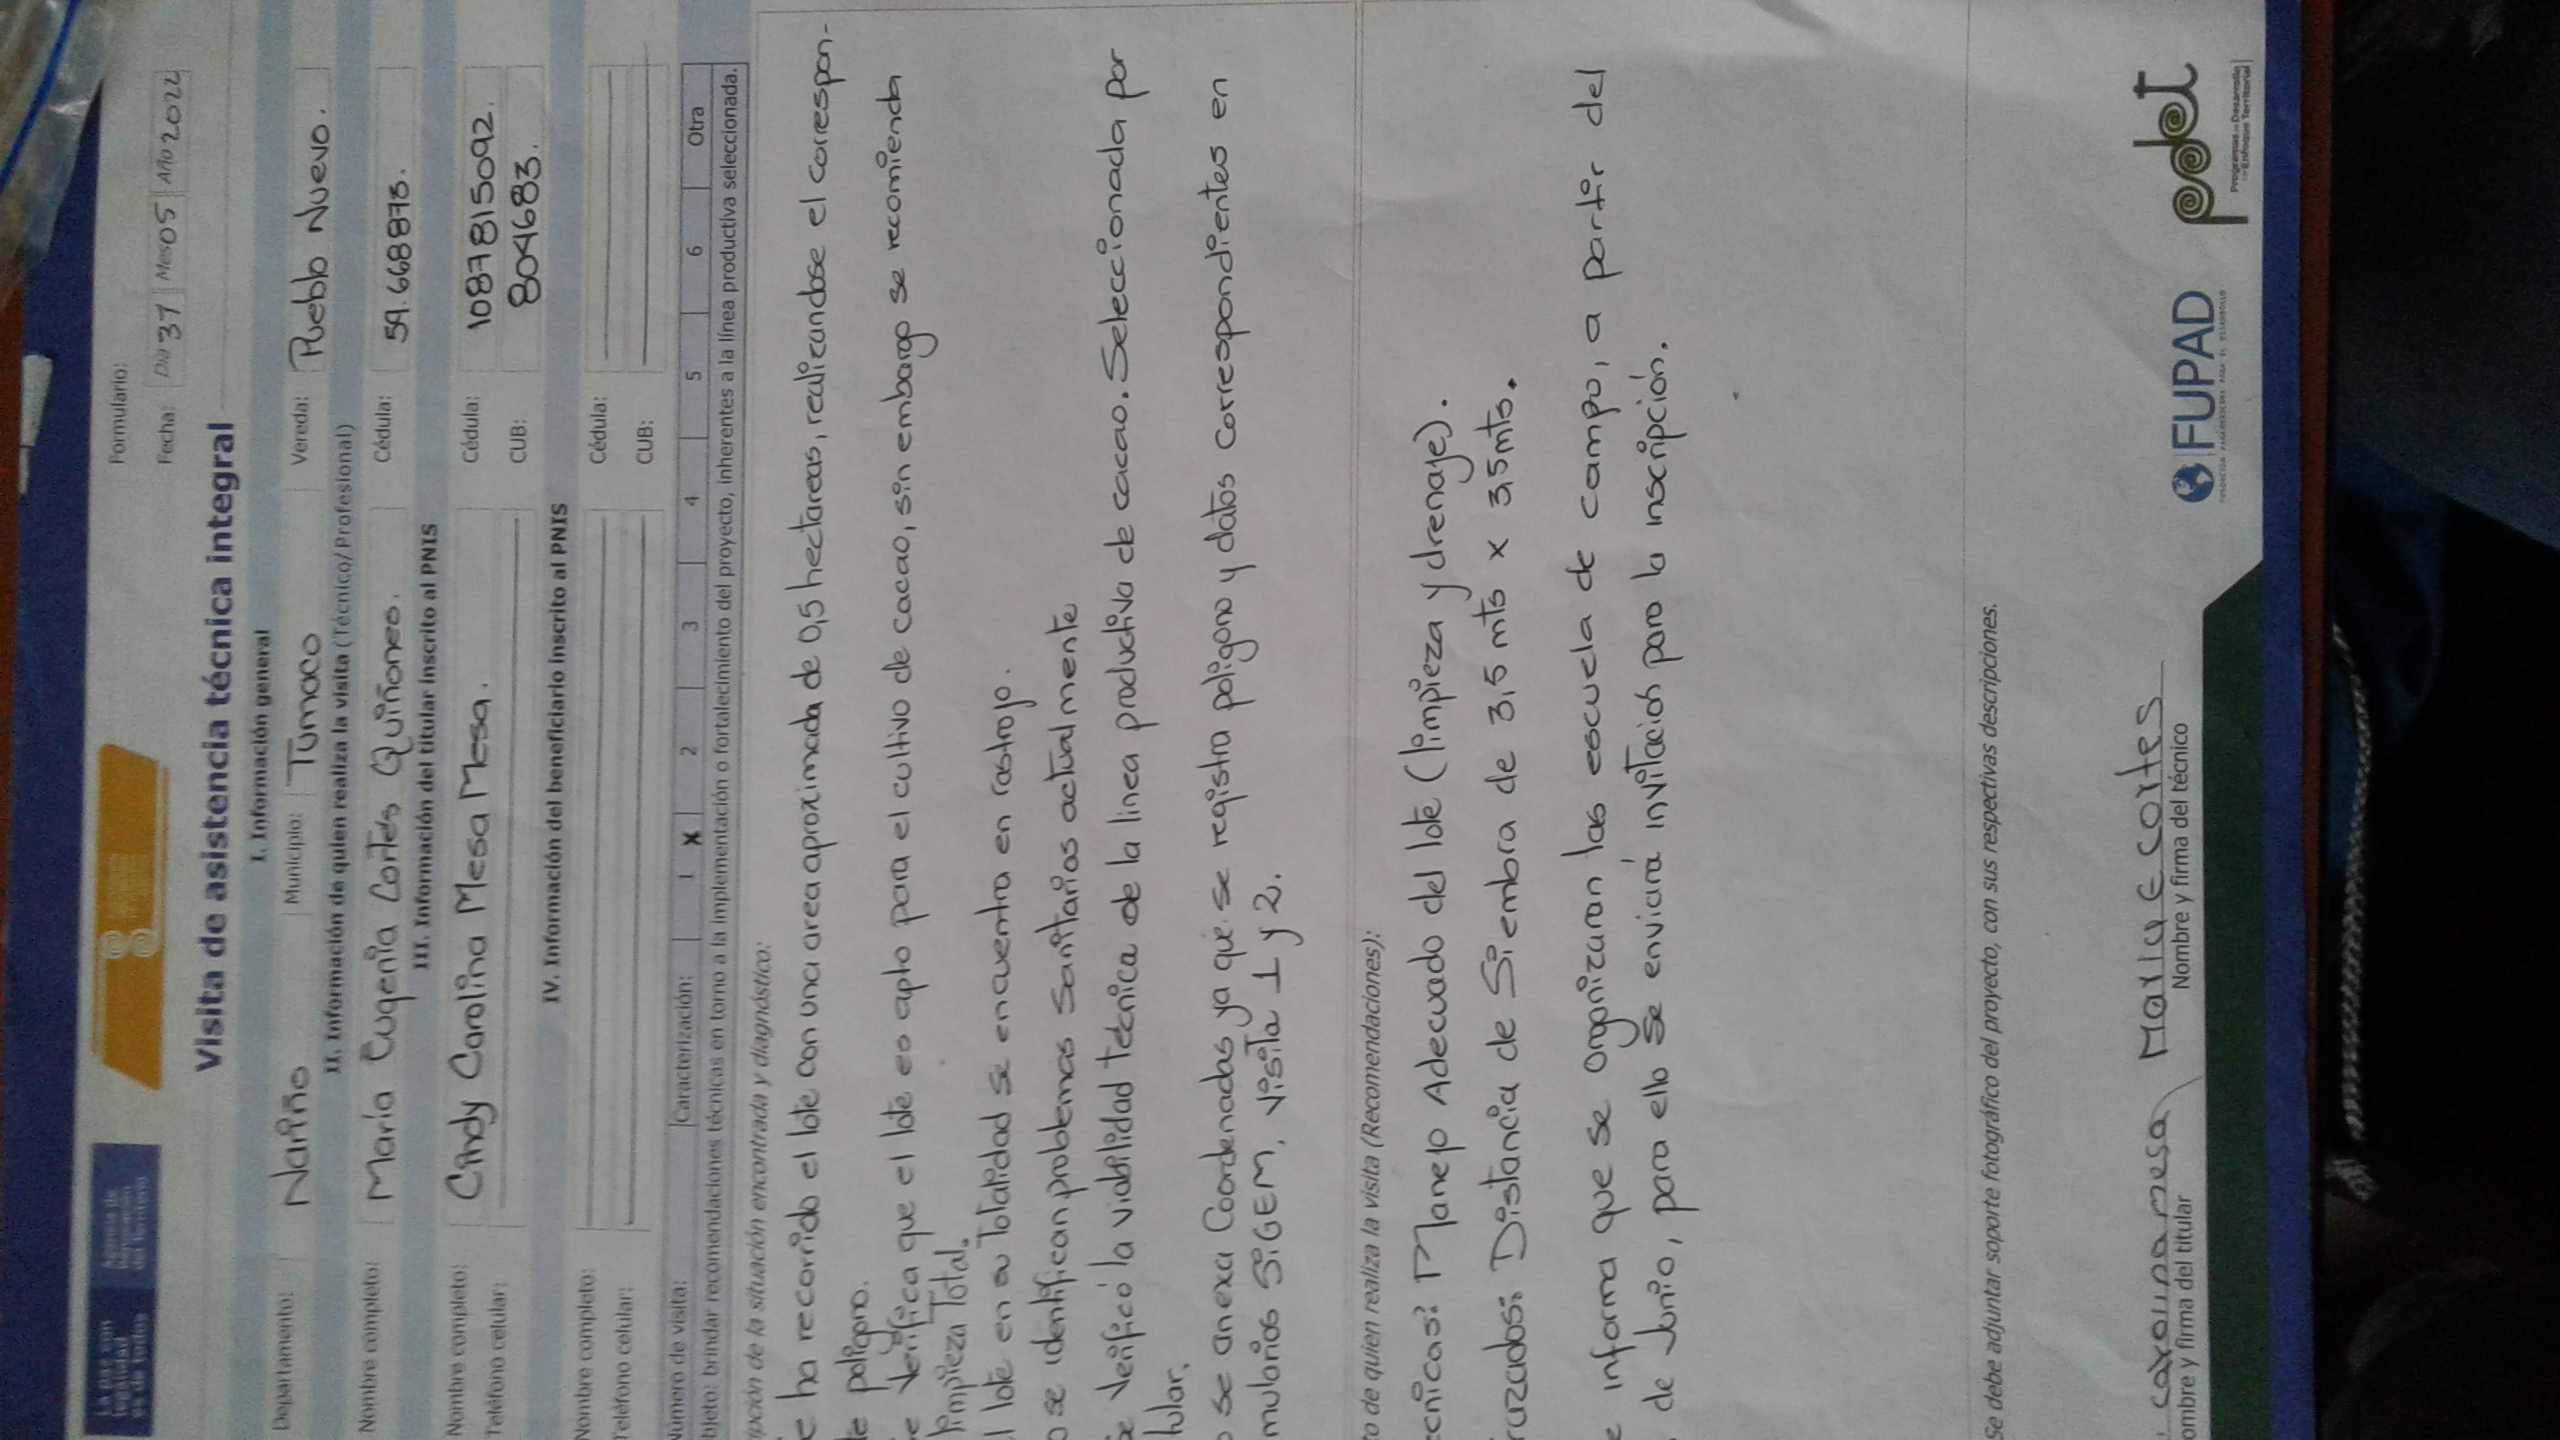 La paz con
legalidad
es de todos
Agencia de
Renovación
del Territorio
Formulario:
Fecha: Día 31 Mes 05 Año 2022
Visita de asistencia técnica integral
I. Información general
Departamento: Nariño Municipio: Tumaco Vereda: Pueblo Nuevo.
II. Información de quien realiza la visita (Técnico/Profesional)
Nombre completo: María Eugenia Cortés Quiñones. Cédula: 59.668873.
III. Información del titular inscrito al PNIS
Nombre completo: Cindy Carolina Mesa Mesa. Cédula: 1087815092.
Teléfono celular: CUB: 804683.
IV. Información del beneficiario inscrito al PNIS
Nombre completo: Cédula:
Teléfono celular: CUB:
Número de visita: Caracterización: 1 X 2 3 4 5 6 Otra
bjeto: brindar recomendaciones técnicas en torno a la implementación o fortalecimiento del proyecto, inherentes a la línea productiva seleccionada.
ripción de la situación encontrada y diagnóstico:
e ha recorrido el lote con una area aproximada de 0,5 hectareas, realizandose el correspon-
te poligono.
e Verifica que el lote es apto para el cultivo de cacao, sin embargo se recomienda
limpieza Total.
l lote en su Totalidad se encuentra en rastrojo.
o se identifican problemas Sanitarios actualmente
se Verificó la viabilidad tecnica de la linea productiva de cacao. Seleccionada por
tular.
o se anexa Coordenadas ya que se registra poligono y datos correspondientes en
mularios SiGEM, visita 1 y 2.
to de quien realiza la visita (Recomendaciones):
ecnicas: Manejo Adecuado del lote (limpieza y drenaje).
ruzados: Distancia de Siembra de 3,5 mts x 3,5mts.
e informa que se organizaran las escuela de campo, a partir del
de Junio, para ello se enviará invitación para la inscripción.
Se debe adjuntar soporte fotográfico del proyecto, con sus respectivas descripciones.
carolina mesa Maria E Cortes
ombre y firma del titular Nombre y firma del técnico
FUPAD
FUNDACIÓN PANAMERICANA PARA EL DESARROLLO
pdet
Programas de Desarrollo
con Enfoque Territorial